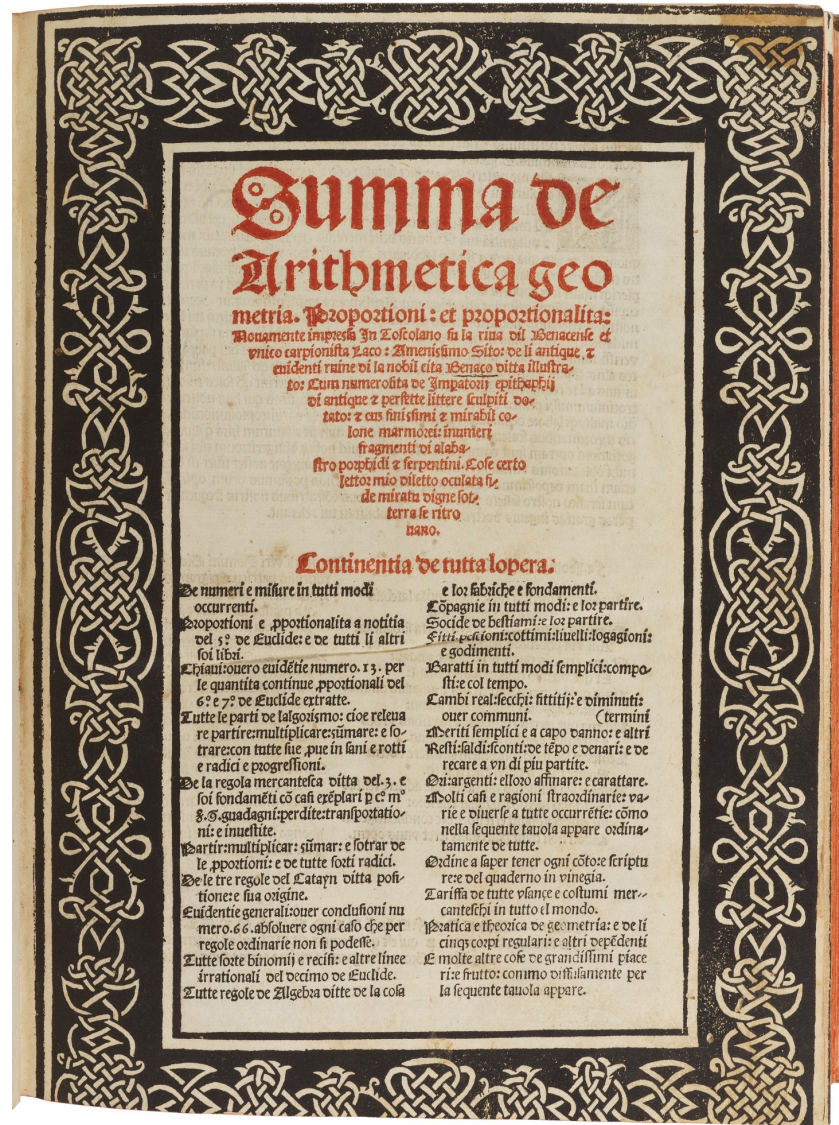 Summa de
Arithmetica geo
metria. Proportioni: et proportionalita:
Nouamente impressa In Toscolano su la riua dil Benacense et
vnico carpionista Laco: Amenissimo Sito: de li antique ⁊
euidenti ruine di la nobil cita Benaco ditta illustra-
to: Cum numerosita de Impatorij epithaphij
di antique ⁊ perfette littere sculpiti do-
tato: ⁊ cũ finissimi ⁊ mirabil co-
lone marmorei: inumeri
fragmenti di alaba-
stro porphidi ⁊ serpentini. Cose certo
lettor mio diletto oculata fi-
de miratu digne sot-
terra se ritro
uano.
Continentia de tutta lopera.
De numeri e misure in tutti modi
occurrenti.
Proportioni e ꝓportionalita a notitia
del 5º de Euclide: e de tutti li altri
soi libri.
Chiaui: ouero euidẽtie numero. 13. per
le quantita continue ꝓportionali del
6º e 7º de Euclide extratte.
Tutte le parti de lalgorismo: cioe releua
re partire: multiplicare: sũmare: e so-
trare: con tutte sue ꝓue in sani e rotti
e radici e progressioni.
De la regola mercantesca ditta del .3. e
soi fondamẽti cõ casi exẽplari ꝑ cº mº
§. G. guadagni: perdite: transportatio-
ni: e inuestite.
Partir: multiplicar: sũmar: e sotrar de
le ꝓportioni: e de tutte sorti radici.
De le tre regole del Catayn ditta posi-
tione: e sua origine.
Euidentie generali: ouer conclusioni nu
mero. 66. absoluere ogni caso che per
regole ordinarie non si podesse.
Tutte sorte binomij e recisi: e altre linee
irrationali del decimo de Euclide.
Tutte regole de Algebra ditte de la cosa
e lor fabriche e fondamenti.
Cõpagnie in tutti modi: e lor partire.
Socide de bestiami: e lor partire.
Fitti pescioni: cottimi: liuelli: logagioni:
e godimenti.
Baratti in tutti modi semplici: compo-
sti: e col tempo.
Cambi real: secchi: fittitij: e diminuti:
ouer communi. (termini
Meriti semplici e a capo danno: e altri
Resti: saldi: sconti: de tẽpo e denari: e de
recare a vn di piu partite.
Ori: argenti: e lloro affinare: e carattare.
Molti casi e ragioni straordinarie: va-
rie e diuerse a tutte occurrẽtie: cõmo
nella sequente tauola appare ordina-
tamente de tutte.
Ordine a saper tener ogni cõto: e scriptu
re: e del quaderno in vinegia.
Tariffa de tutte vsançe e costumi mer-
canteschi in tutto el mondo.
Pratica e theorica de geometria: e de li
cinqꝫ corpi regulari: e altri depẽdenti
E molte altre cose de grandissimi piace
ri: e frutto: commo diffusamente per
la sequente tauola appare.